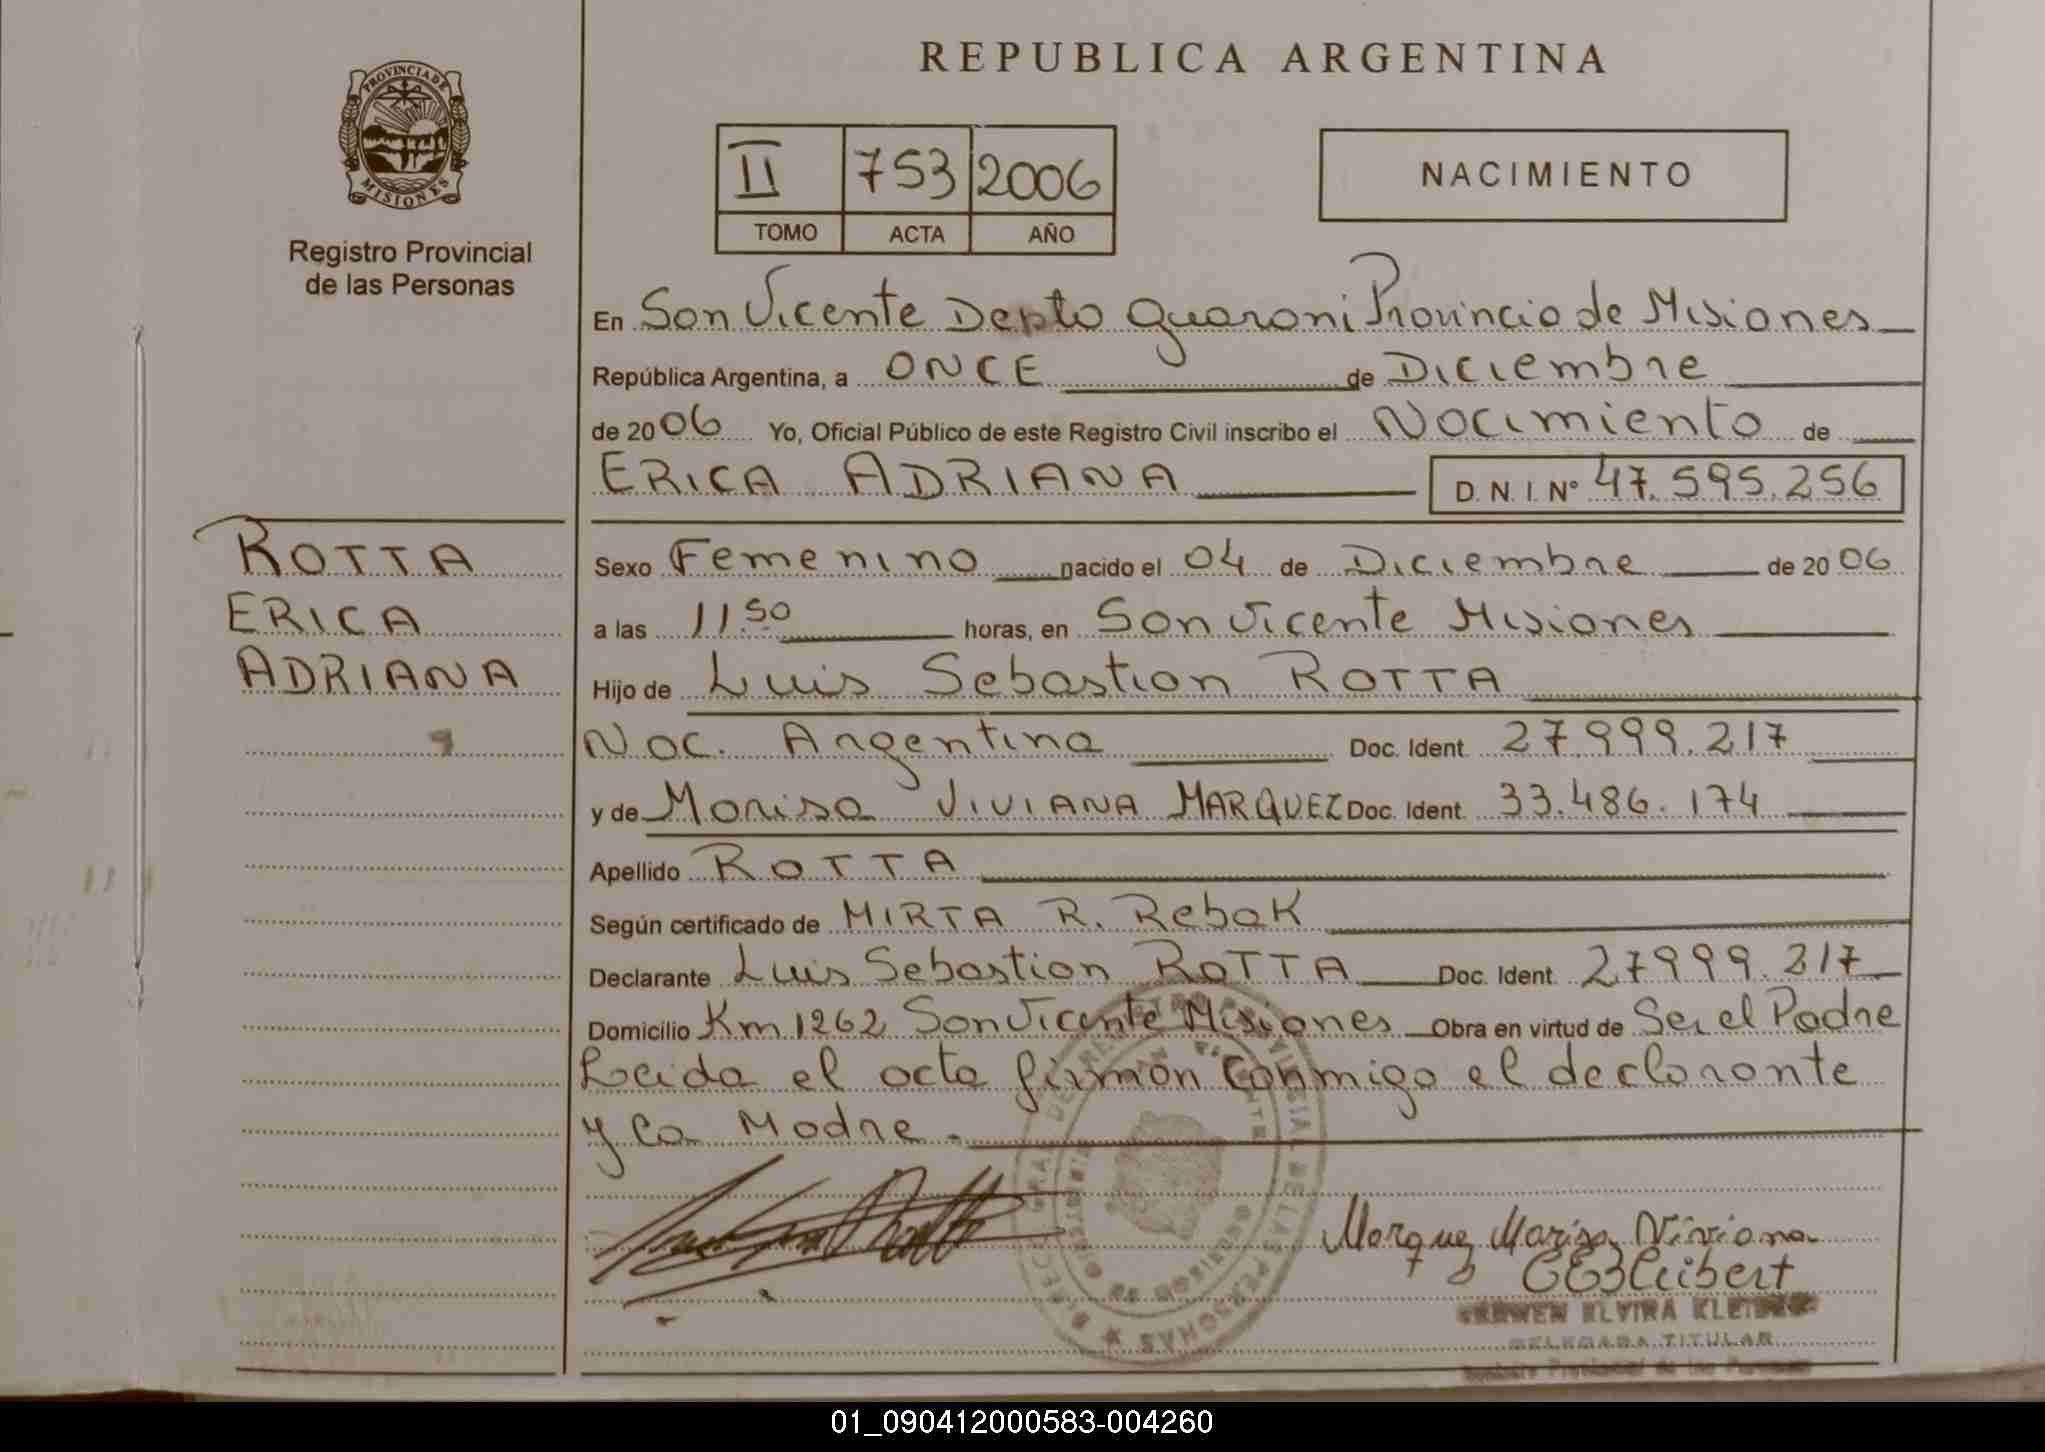 REPUBLICA ARGENTINA
PROVINCIA DE MISIONES
Registro Provincial
de las Personas
II 753 2006
TOMO ACTA AÑO
NACIMIENTO
En San Vicente Depto Guarani Provincia de Misiones
República Argentina, a ONCE de Diciembre
de 2006 Yo, Oficial Público de este Registro Civil inscribo el Nacimiento de
ERICA ADRIANA D. N. I. Nº 47.595.256
ROTTA
ERICA
ADRIANA
Sexo Femenino nacido el 04 de Diciembre de 2006
a las 11.50 horas, en San Vicente Misiones
Hijo de Luis Sebastian ROTTA
Nac. Argentina Doc. Ident. 27.999.217
y de Marisa VIVIANA MARQUEZ Doc. Ident. 33.486.174
Apellido ROTTA
Según certificado de MIRTA R. Rebak
Declarante Luis Sebastian ROTTA Doc. Ident. 27999.217
Domicilio Km 1262 San Vicente Misiones Obra en virtud de Ser el Padre
Leida el acta firman conmigo el declarante
y la Madre.
Marquez Marisa Viviana
DELEGADA TITULAR
Registro Provincial de las Personas
01_090412000583-004260